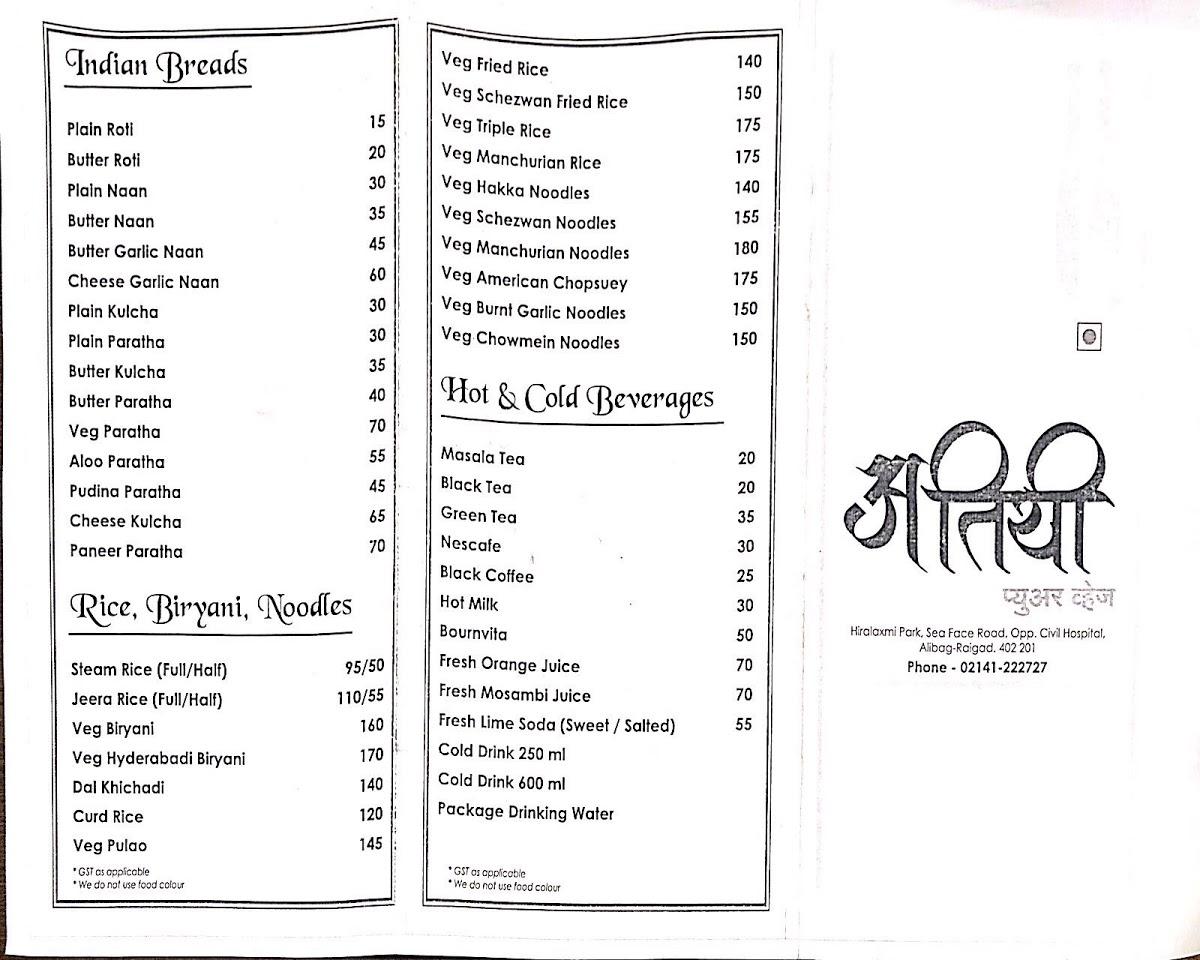 Indian Breads
Plain Roti 15
Butter Roti 20
Plain Naan 30
Butter Naan 35
Butter Garlic Naan 45
Cheese Garlic Naan 60
Plain Kulcha 30
Plain Paratha 30
Butter Kulcha 35
Butter Paratha 40
Veg Paratha 70
Aloo Paratha 55
Pudina Paratha 45
Cheese Kulcha 65
Paneer Paratha 70
Rice, Biryani, Noodles
Steam Rice (Full/Half) 95/50
Jeera Rice (Full/Half) 110/55
Veg Biryani 160
Veg Hyderabadi Biryani 170
Dal Khichadi 140
Curd Rice 120
Veg Pulao 145
* GST as applicable
* We do not use food colour
Veg Fried Rice 140
Veg Schezwan Fried Rice 150
Veg Triple Rice 175
Veg Manchurian Rice 175
Veg Hakka Noodles 140
Veg Schezwan Noodles 155
Veg Manchurian Noodles 180
Veg American Chopsuey 175
Veg Burnt Garlic Noodles 150
Veg Chowmein Noodles 150
Hot & Cold Beverages
Masala Tea 20
Black Tea 20
Green Tea 35
Nescafe 30
Black Coffee 25
Hot Milk 30
Bournvita 50
Fresh Orange Juice 70
Fresh Mosambi Juice 70
Fresh Lime Soda (Sweet / Salted) 55
Cold Drink 250 ml
Cold Drink 600 ml
Package Drinking Water
* GST as applicable
* We do not use food colour
अतिथी
प्युअर व्हेज
Hiralaxmi Park, Sea Face Road, Opp. Civil Hospital,
Alibag-Raigad. 402 201
Phone - 02141-222727